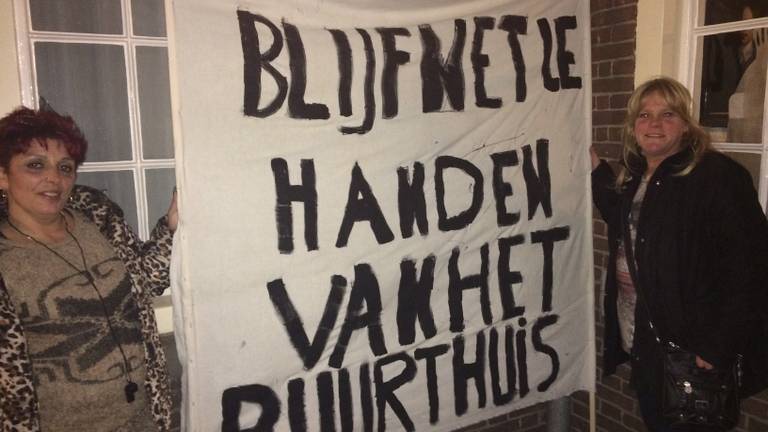 BLIJF MET JE
HANDEN
VAN HET
BUURTHUIS